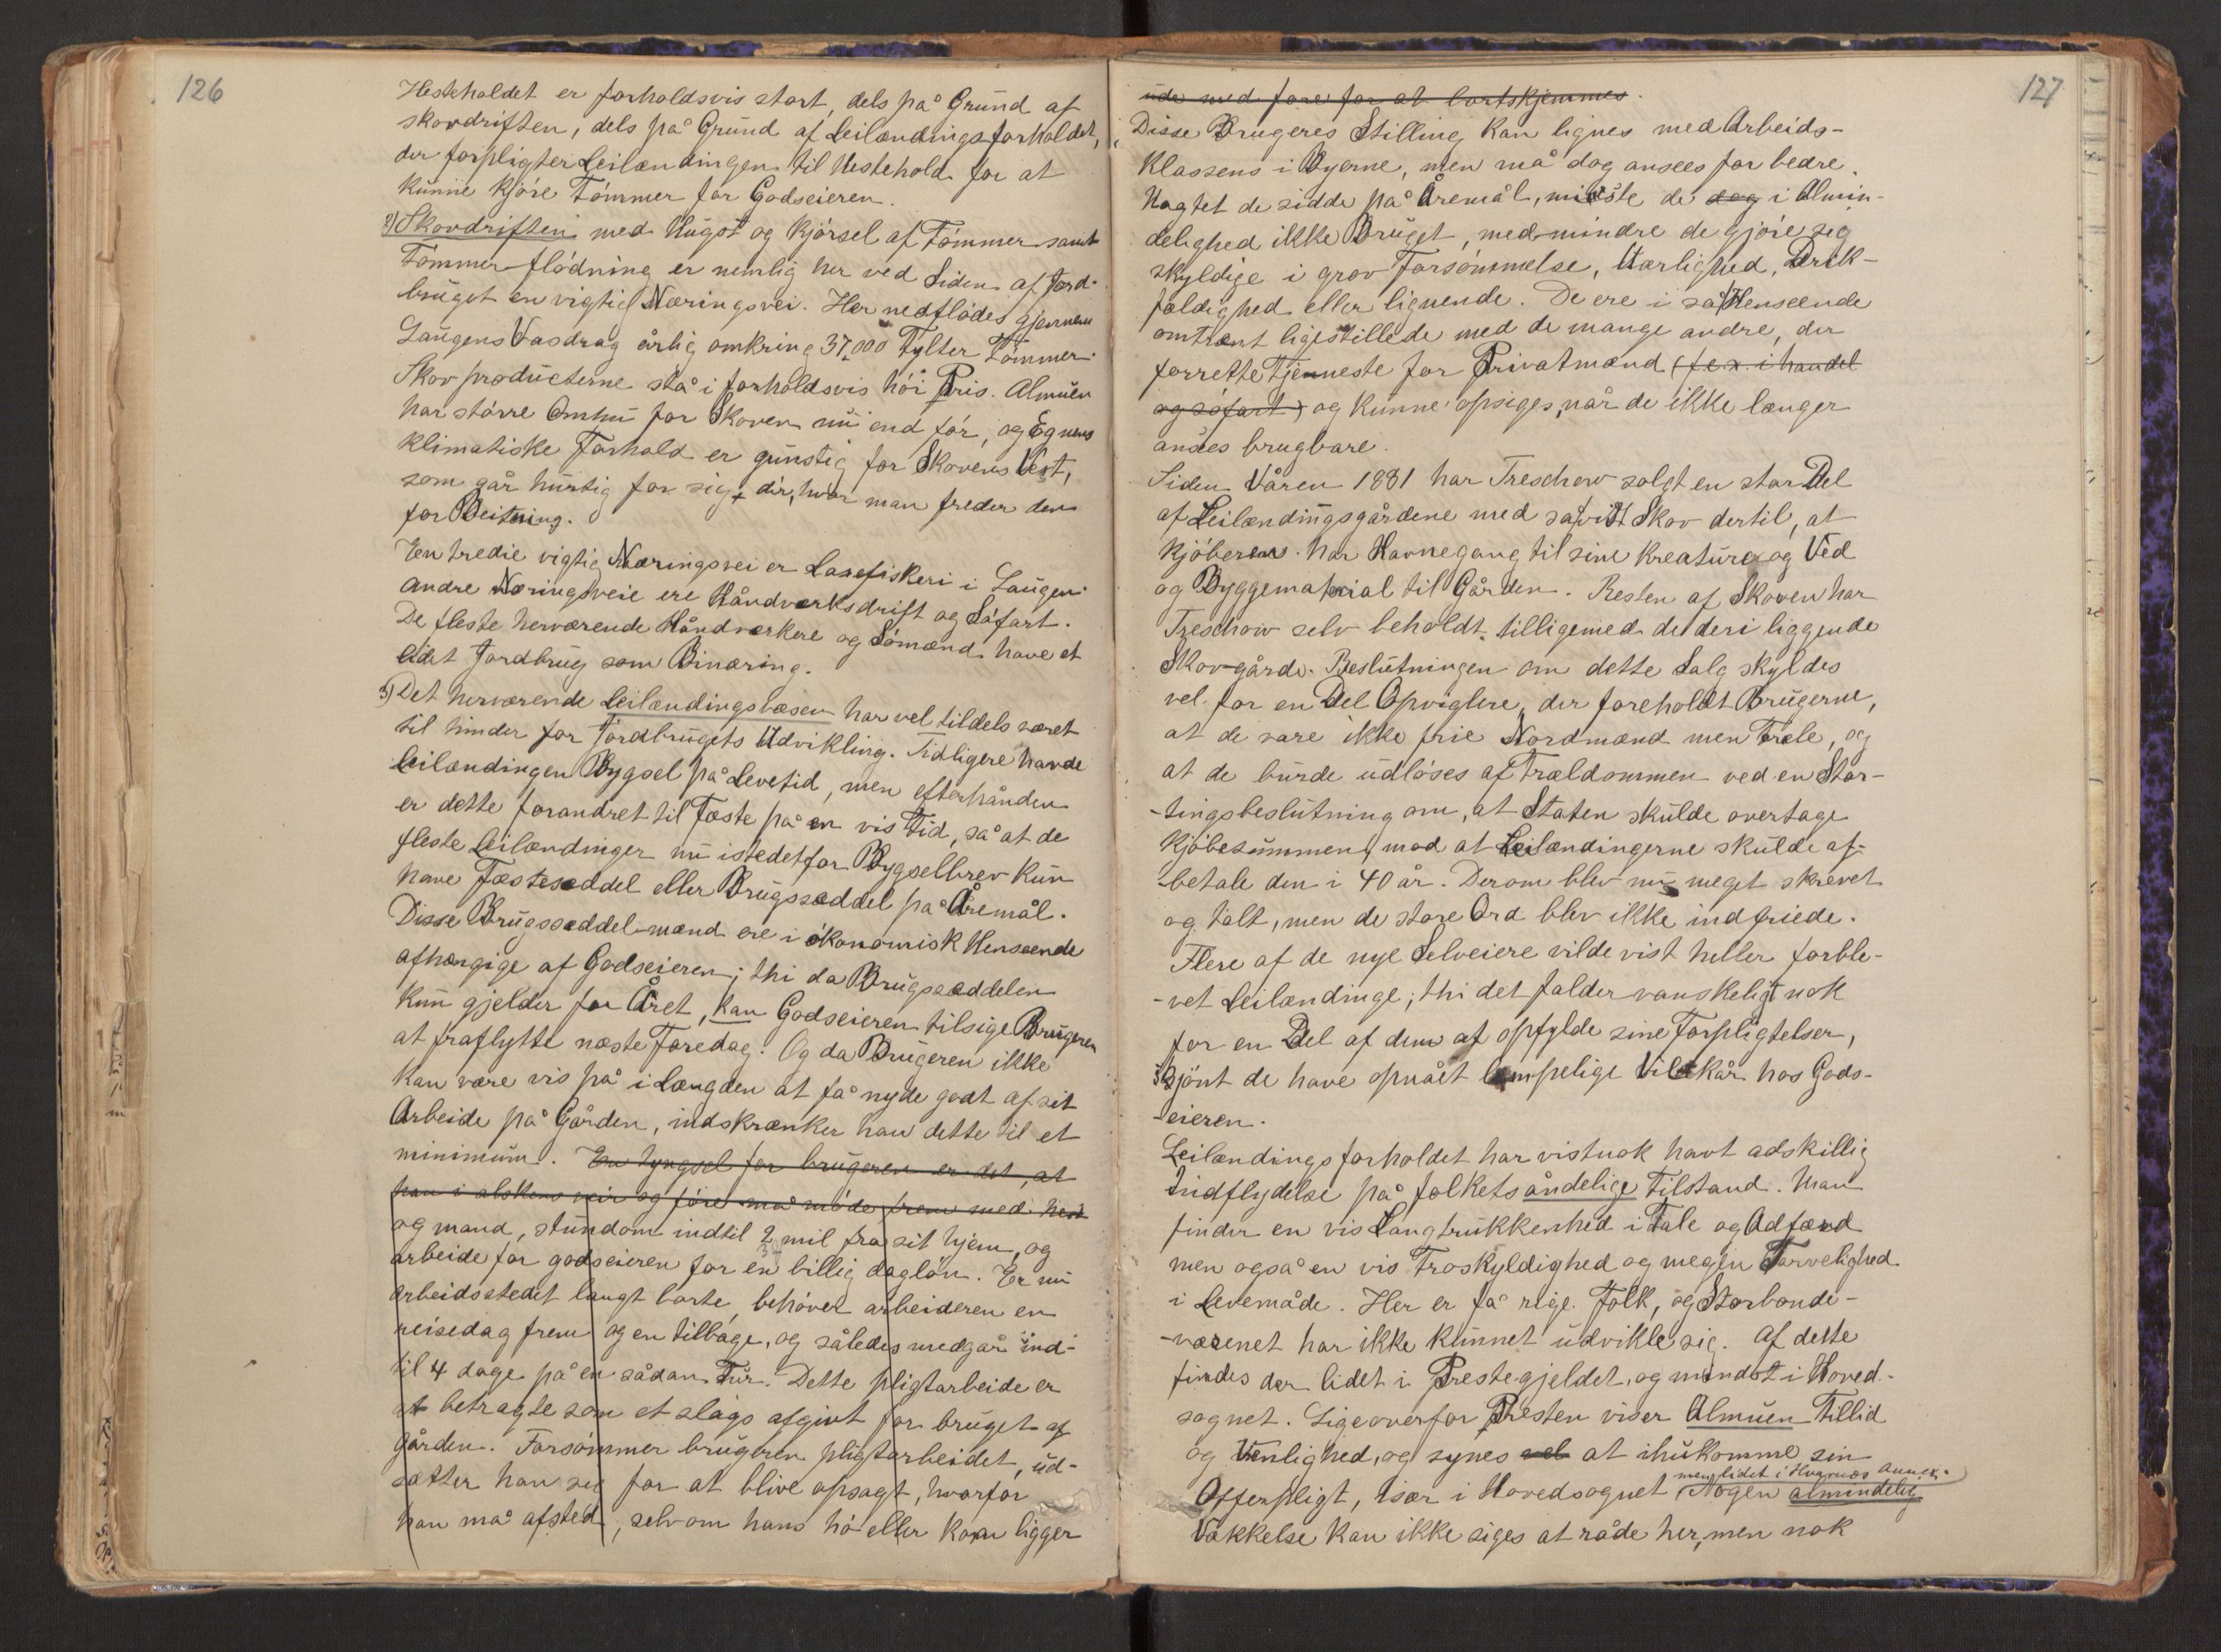 126
Hesteholdet er forholdsvis stort, dels på Grund af
skovdriften, dels på Grund af Leilændingsforholdet,
der forpligter Leilændingen til Hestehold for at
kunne kjöre Tömmer for Godseieren.
2) Skovdriften med Hugst og Kjörsel af Tömmer samt
Tömmer-flödning er nemlig her ved Siden af Jord-
bruget en vigtig Næringsvei. Her nedflödes gjennem
Laugens Vasdrag årlig omkring 37,000 Tylter Tömmer.
Skovproducterne stå i forholdsvis höi Pris. Almuen
har större Omhu for Skoven nu end för, og Egnens
klimatiske Forhold er gunstig for Skovens Vext,
som går hurtig for sig der, hvor man freder den
for Beitning.
En tredie vigtig Næringsvei er Laxefiskeri i Laugen.
Andre Næringsveie ere Håndverksdrift og Söfart.
De fleste herværende Håndværkere og Sömænd have et
lidet Jordbrug som Binæring.
3) Det herværende Leilændingsvæsen har vel tildels været
til hinder for Jordbrugets Udvikling. Tidligere havde
Leilændingen Bygsel på Levetid, men efterhånden
er dette forandret til Fæste på en vis Tid, så at de
fleste Leilændinger nu istedetfor Bygselbrev kun
have Fæsteseddel eller Brugsseddel på Åremål.
Disse Brugsseddel-mænd ere i ökonomisk Henseende
afhængige af Godseieren; thi da Brugsseddelen
kun gjelder for Året, kan Godseieren tilsige Brugeren
at fraflytte næste Faredag. Og da Brugeren ikke
kan være vis på i Længden at få nyde godt af sit
Arbeide på Gården, indskrænker han dette til et
minimum. En tyngsel for brugeren er det, at
han i alskens veir og före må möde frem med hest
og mand, stundom indtil 2 mil fra sit hjem, og
arbeide for godseieren for en billig daglön. Er nu
arbeidsstedet langt borte, behöver arbeideren en
reisedag frem og en tilbage, og således medgår ind-
til 4 dage på en sådan Tur. Dette pligtarbeide er
at betragte som et slags afgivt for bruget af
gården. Forsömmer brugeren pligtarbeidet, ud-
sætter han sig for at blive opsagt, hvorfor
han må afsted, selv om hans hö eller korn ligger
127
ude med fare for at bortskjemmes.
Disse Brugeres Stilling kan lignes med Arbeids-
klassens i Byerne, men må dog ansees for bedre.
Uagtet de sidde på Åremål, miste de dog i Almin-
delighed ikke Bruget, med mindre de gjöre sig
skyldige i grov Forsömmelse, Uærlighed, Drik-
fældighed eller lignende. De ere i så Henseende
omtrent ligestillede med de mange andre, der
forrette Tjenneste for Privatmænd (f.ex. i handel
og söfart) og kunne opsiges, når de ikke længer
ansees brugbare.
Siden Våren 1881 har Treschow solgt en stor Del
af Leilændingsgårdene med såvidt Skov dertil, at
Kjöberen har Havnegang til sine Kreature og Ved
og Byggematerial til Gården. Resten af Skoven har
Treschow selv beholdt tilligemed de deri liggende
Skov-gårde. Beslutningen om dette Salg skyldes
vel for en Del Opviglere, der foreholdt Brugerne,
at de vare ikke frie Nordmænd men Træle, og
at de burde udlöses af Trældommen ved en Stor-
-tingsbeslutning om, at Staten skulde overtage
Kjöbesummen, mod at Leilændingerne skulde af-
-betale den i 40 år. Derom blev nu meget skrevet
og talt, men de store Ord blev ikke indfriede.
Flere af de nye Selveiere vilde vist heller forble-
-vet Leilændinge; thi det falder vanskeligt nok
for en Del af dem at opfylde sine Forpligtelser,
skjönt de have opnået lempelige Vilkår hos Gods-
-eieren.
Leilændingsforholdet har vistnok havt adskillig
Indflydelse på folkets åndelige Tilstand. Man
finder en vis Langtrukkenhed i Tale og Adfærd
men også en vis Troskyldighed og megen Tarvelighed
i Levemåde. Her er få rige Folk, og Storbonde-
-væsenet har ikke kunnet udvikle sig. Af dette
findes der lidet i Prestegjeldet, og mindst i Hoved-
sognet. Ligeoverfor Presten viser Almuen Tillid
og Venlighed, og synes vel at ihukomme sin
men lidet i Hvarnes Annex.
Offerpligt, især i Hovedsognet Nogen almindelig
Vækkelse kan ikke siges at råde her, men nok